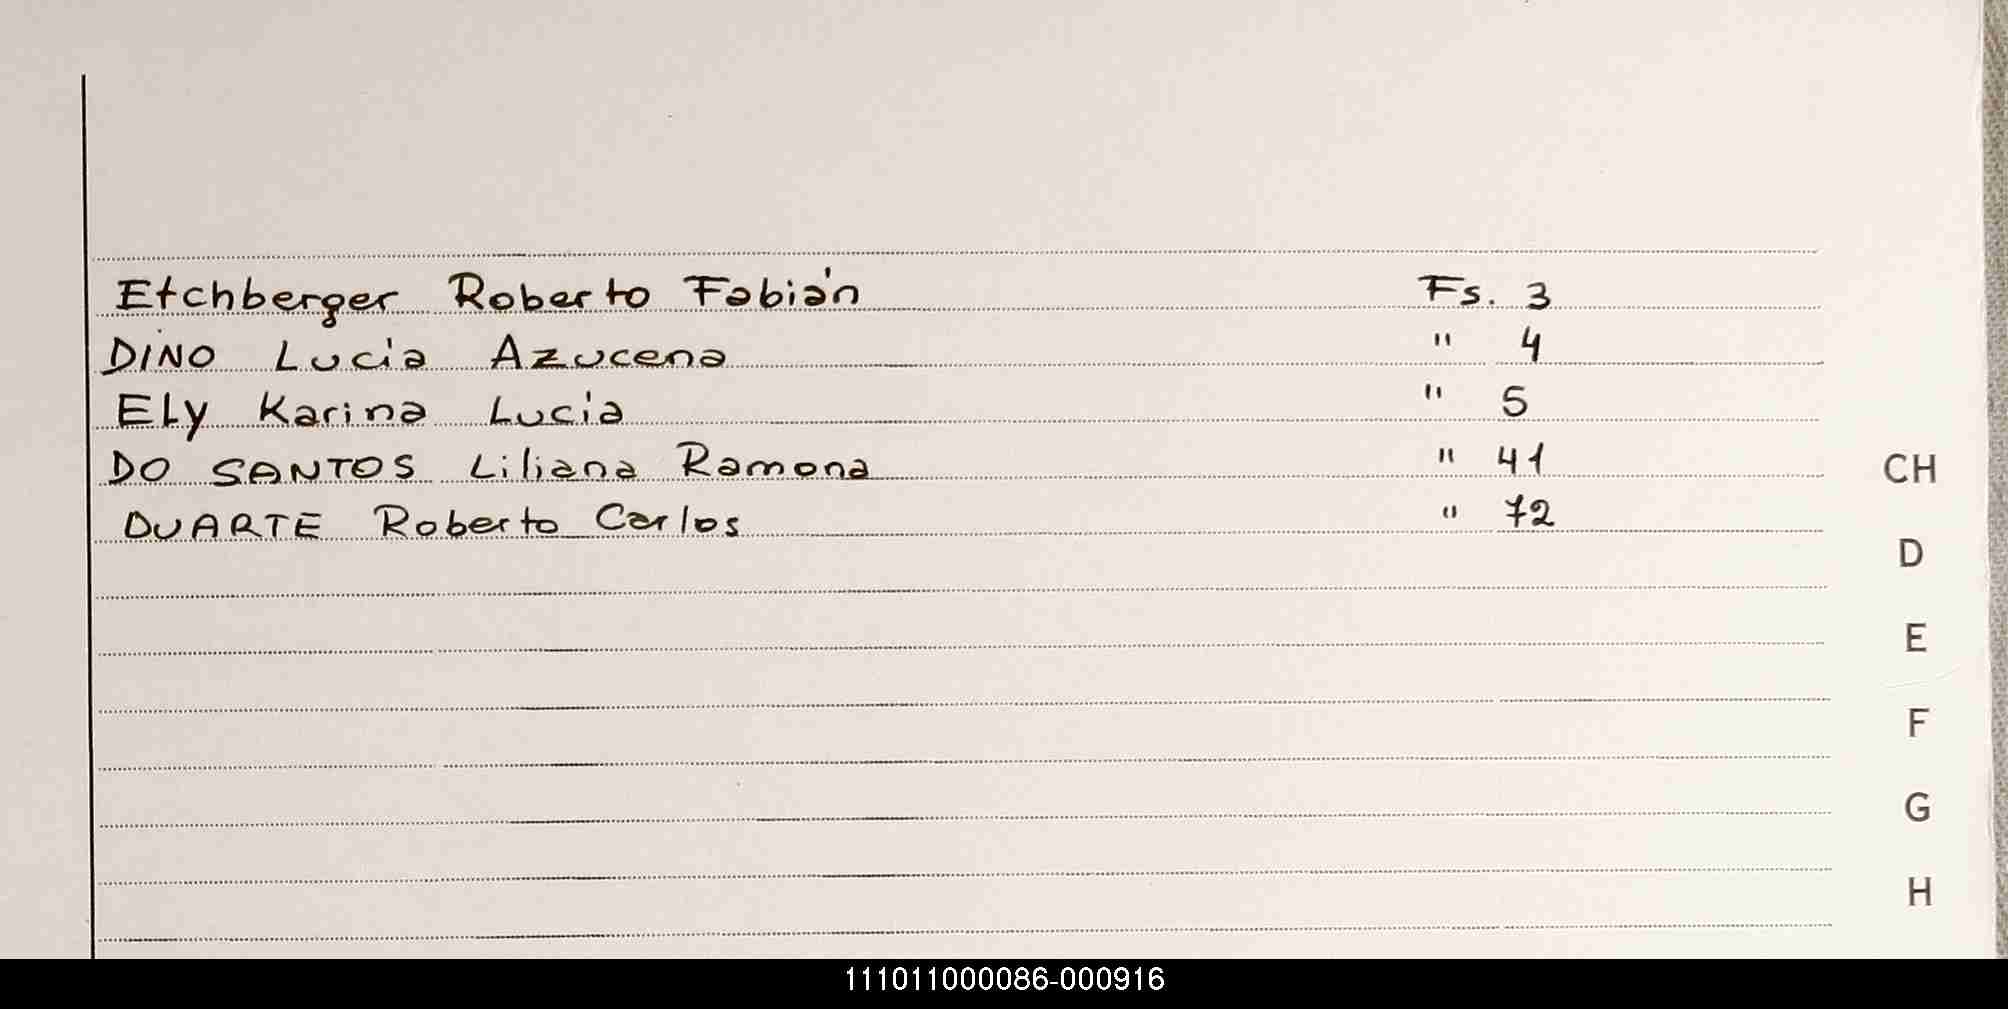 Etchberger Roberto Fabián Fs. 3
DINO Lucia Azucena " 4
ELy Karina Lucia " 5
DO SANTOS Liliana Ramona " 41
DUARTE Roberto Carlos " 72
CH
D
E
F
G
H
111011000086-000916